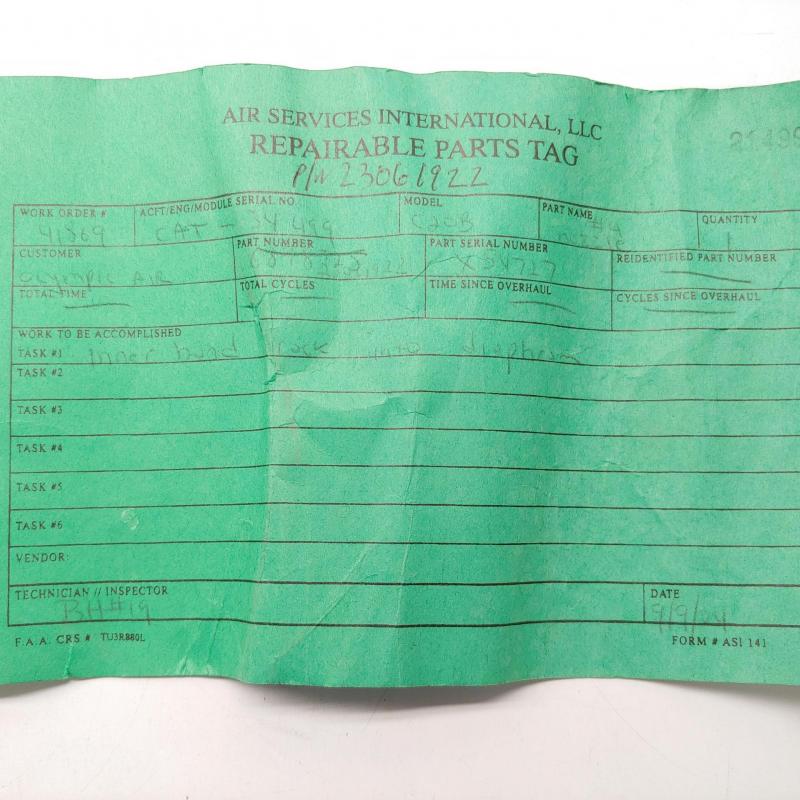 AIR SERVICES INTERNATIONAL, LLC
REPAIRABLE PARTS TAG
P/N 23061922
WORK ORDER # ACFT/ENG/MODULE SERIAL NO. MODEL PART NAME QUANTITY
41869 CAT - C20B #4 1
CUSTOMER PART NUMBER PART SERIAL NUMBER REIDENTIFIED PART NUMBER
Olympic AIR X54727
TOTAL TIME TOTAL CYCLES TIME SINCE OVERHAUL CYCLES SINCE OVERHAUL
WORK TO BE ACCOMPLISHED
TASK #1 Inner band
TASK #2
TASK #3
TASK #4
TASK #5
TASK #6
VENDOR:
TECHNICIAN // INSPECTOR DATE
BH#19 9/9/04
F.A.A. CRS # TU3R880L FORM # ASI 141